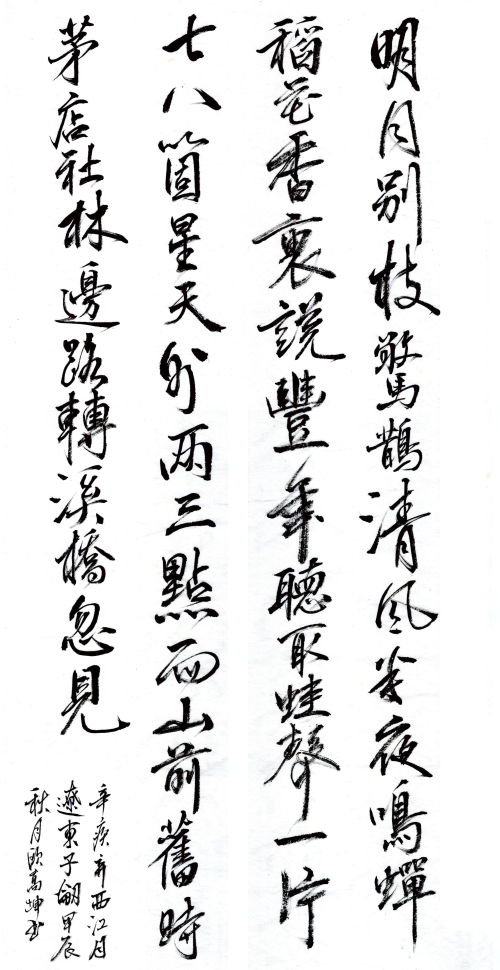 明月別枝驚鵲清風半夜鳴蟬
稻花香裏說豐年聽取蛙聲一片
七八箇星天外兩三點雨山前舊時
茅店社林邊路轉溪橋忽見
辛疾弃西江月
遼東子翩甲辰
秋月欧高坤书